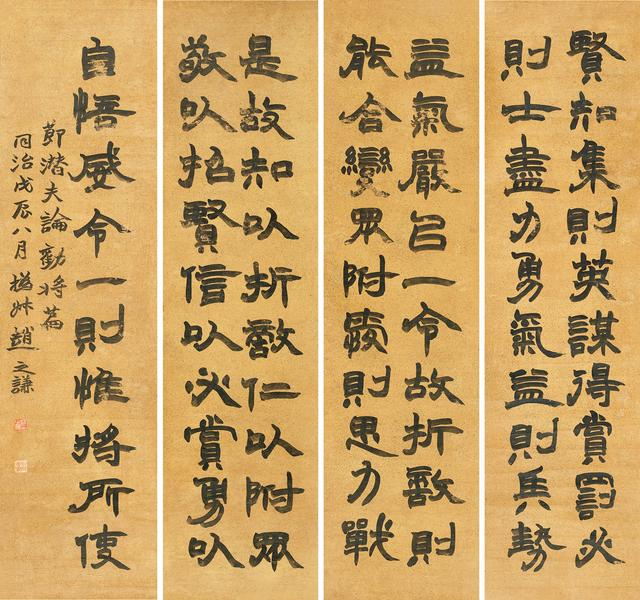 賢知集則英謀得賞罰必
則士盡力勇氣益則兵勢
益氣嚴㠯一令故折敵則
能合變眾附則思力戰
是故知以折敵仁以附眾
敬以招賢信以必賞勇以
自悟威令一則惟將所使
節潛夫論勸將篇
同治戊辰八月 撝叔趙之謙